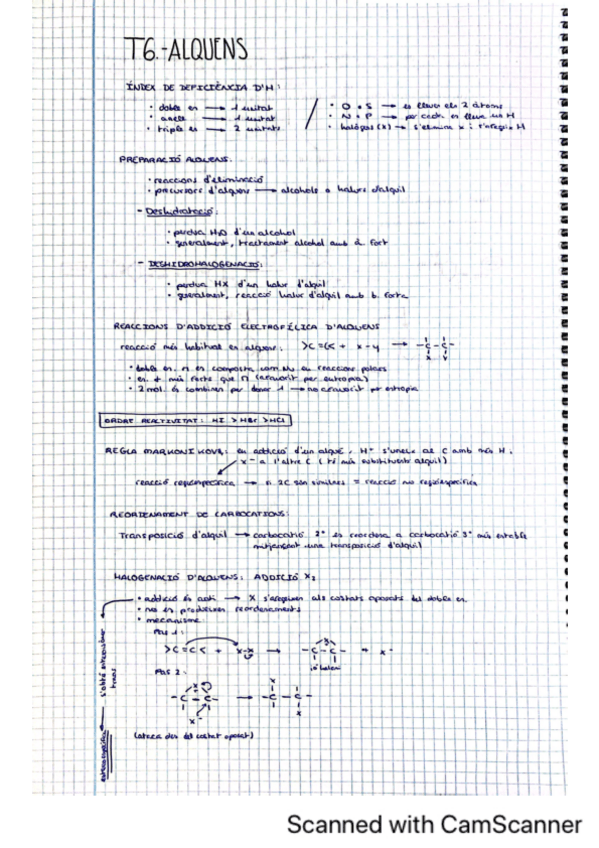 T6.-ALQUENS
ÍNDEX DE DEFICIÈNCIA D'H:
· doble en → 1 unitat
· anell → 1 unitat
· triple en → 2 unitats
· O · S → es lleven els 2 àtoms
· N · P → per cada en lleve un H
· halògen (X) → s'elimina X i s'afegix H
PREPARACIÓ ALQUENS.
· reaccions d'eliminació
· precursors d'alquens → alcohols o halurs d'alquil
- Deshidratació:
· pèrdua H2O d'un alcohol
· generalment, tractament alcohol amb à. fort
- DESHIDROHALOGENACIÓ:
· pèrdua HX d'un halur d'alquil
· generalment, reacció halur d'alquil amb b. forta
REACCIONS D'ADDICIÓ ELECTROFÍLICA D'ALQUENS
reacció més habitual en alquens: >C=C< + X-Y → -C-C-
X Y
· dobles en. π es comporta com Nu en reaccions polars
· en. σ més forte que π (afavorit per entropia)
· 2 mol. es combinen per donar 1 → no afavorit per entropia
ORDRE REACTIVITAT: HI > HBr > HCl
REGLA MARKONIKOV: en addició d'un alqué, H+ s'uneix al C amb més H.
X- a l'altre C (té més substituents alquil)
reacció regioespecífica → si 2C són similars = reacció no regioespecífica
REORDENAMENT DE CARBOCATIONS:
Transposició d'alquil → carbocatió 2° es reordena a carbocatió 3° més estable
mitjançant una transposició d'alquil
HALOGENACIÓ D'ALQUENS: ADDICIÓ X2
· addició és anti → X s'afegixen als costats oposats del doble en.
· no es produeixen reordenaments
· mecanisme:
Pas 1:
>C=C< + X-X → -C-C- + X-
Pas 2:
-C-C- → -C-C-
(ataca des del costat oposat)
s'obté
trans
Scanned with CamScanner